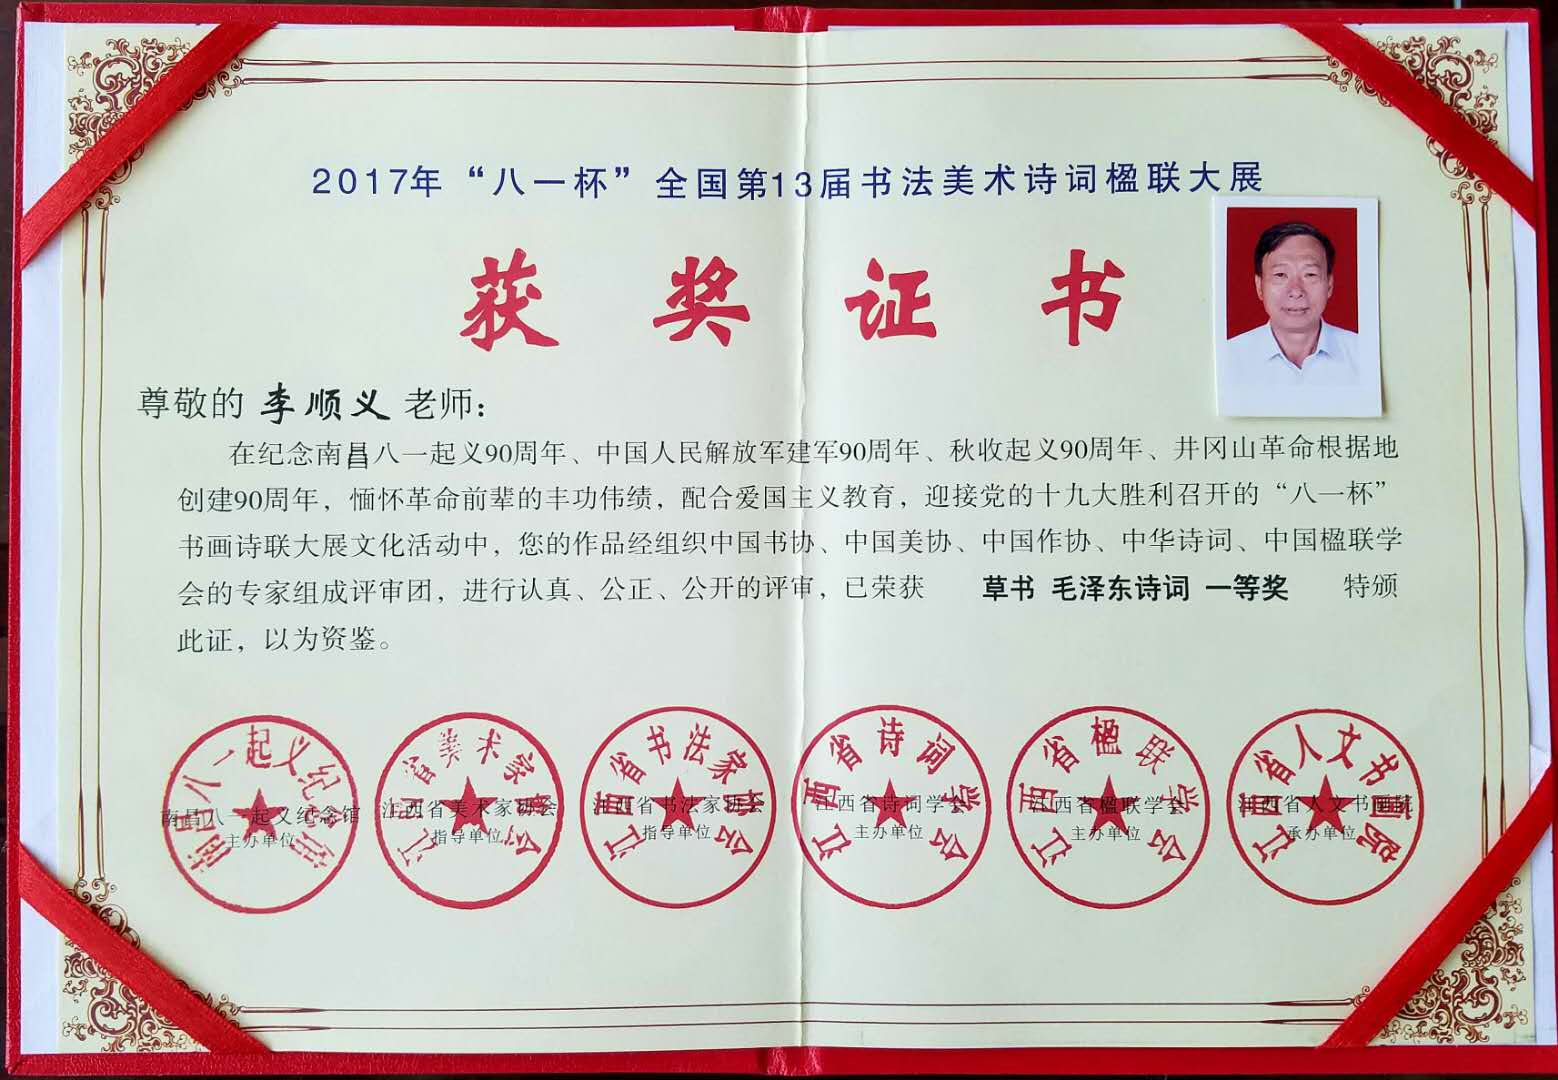 2017年“八一杯”全国第13届书法美术诗词楹联大展
获奖证书
尊敬的 李顺义 老师：
在纪念南昌八一起义90周年、中国人民解放军建军90周年、秋收起义90周年、井冈山革命根据地
创建90周年，愐怀革命前辈的丰功伟绩，配合爱国主义教育，迎接党的十九大胜利召开的“八一杯”
书画诗联大展文化活动中，您的作品经组织中国书协、中国美协、中国作协、中华诗词、中国楹联学
会的专家组成评审团，进行认真、公正、公开的评审，已荣获 草书 毛泽东诗词 一等奖 特颁
此证，以为资鉴。
南昌八一起义纪念馆
南昌八一起义纪念馆
主办单位
江西省美术家协会
江西省美术家协会
指导单位
江西省书法家协会
江西省书法家协会
指导单位
江西省诗词学会
江西省诗词学会
主办单位
江西省楹联学会
江西省楹联学会
主办单位
江西省人文书画院
江西省人文书画院
承办单位